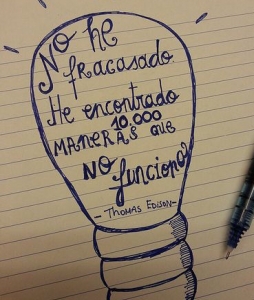 No he
fracasado
He encontrado
10.000
MANERAS que
NO funciona
- THOMAS EDISON -